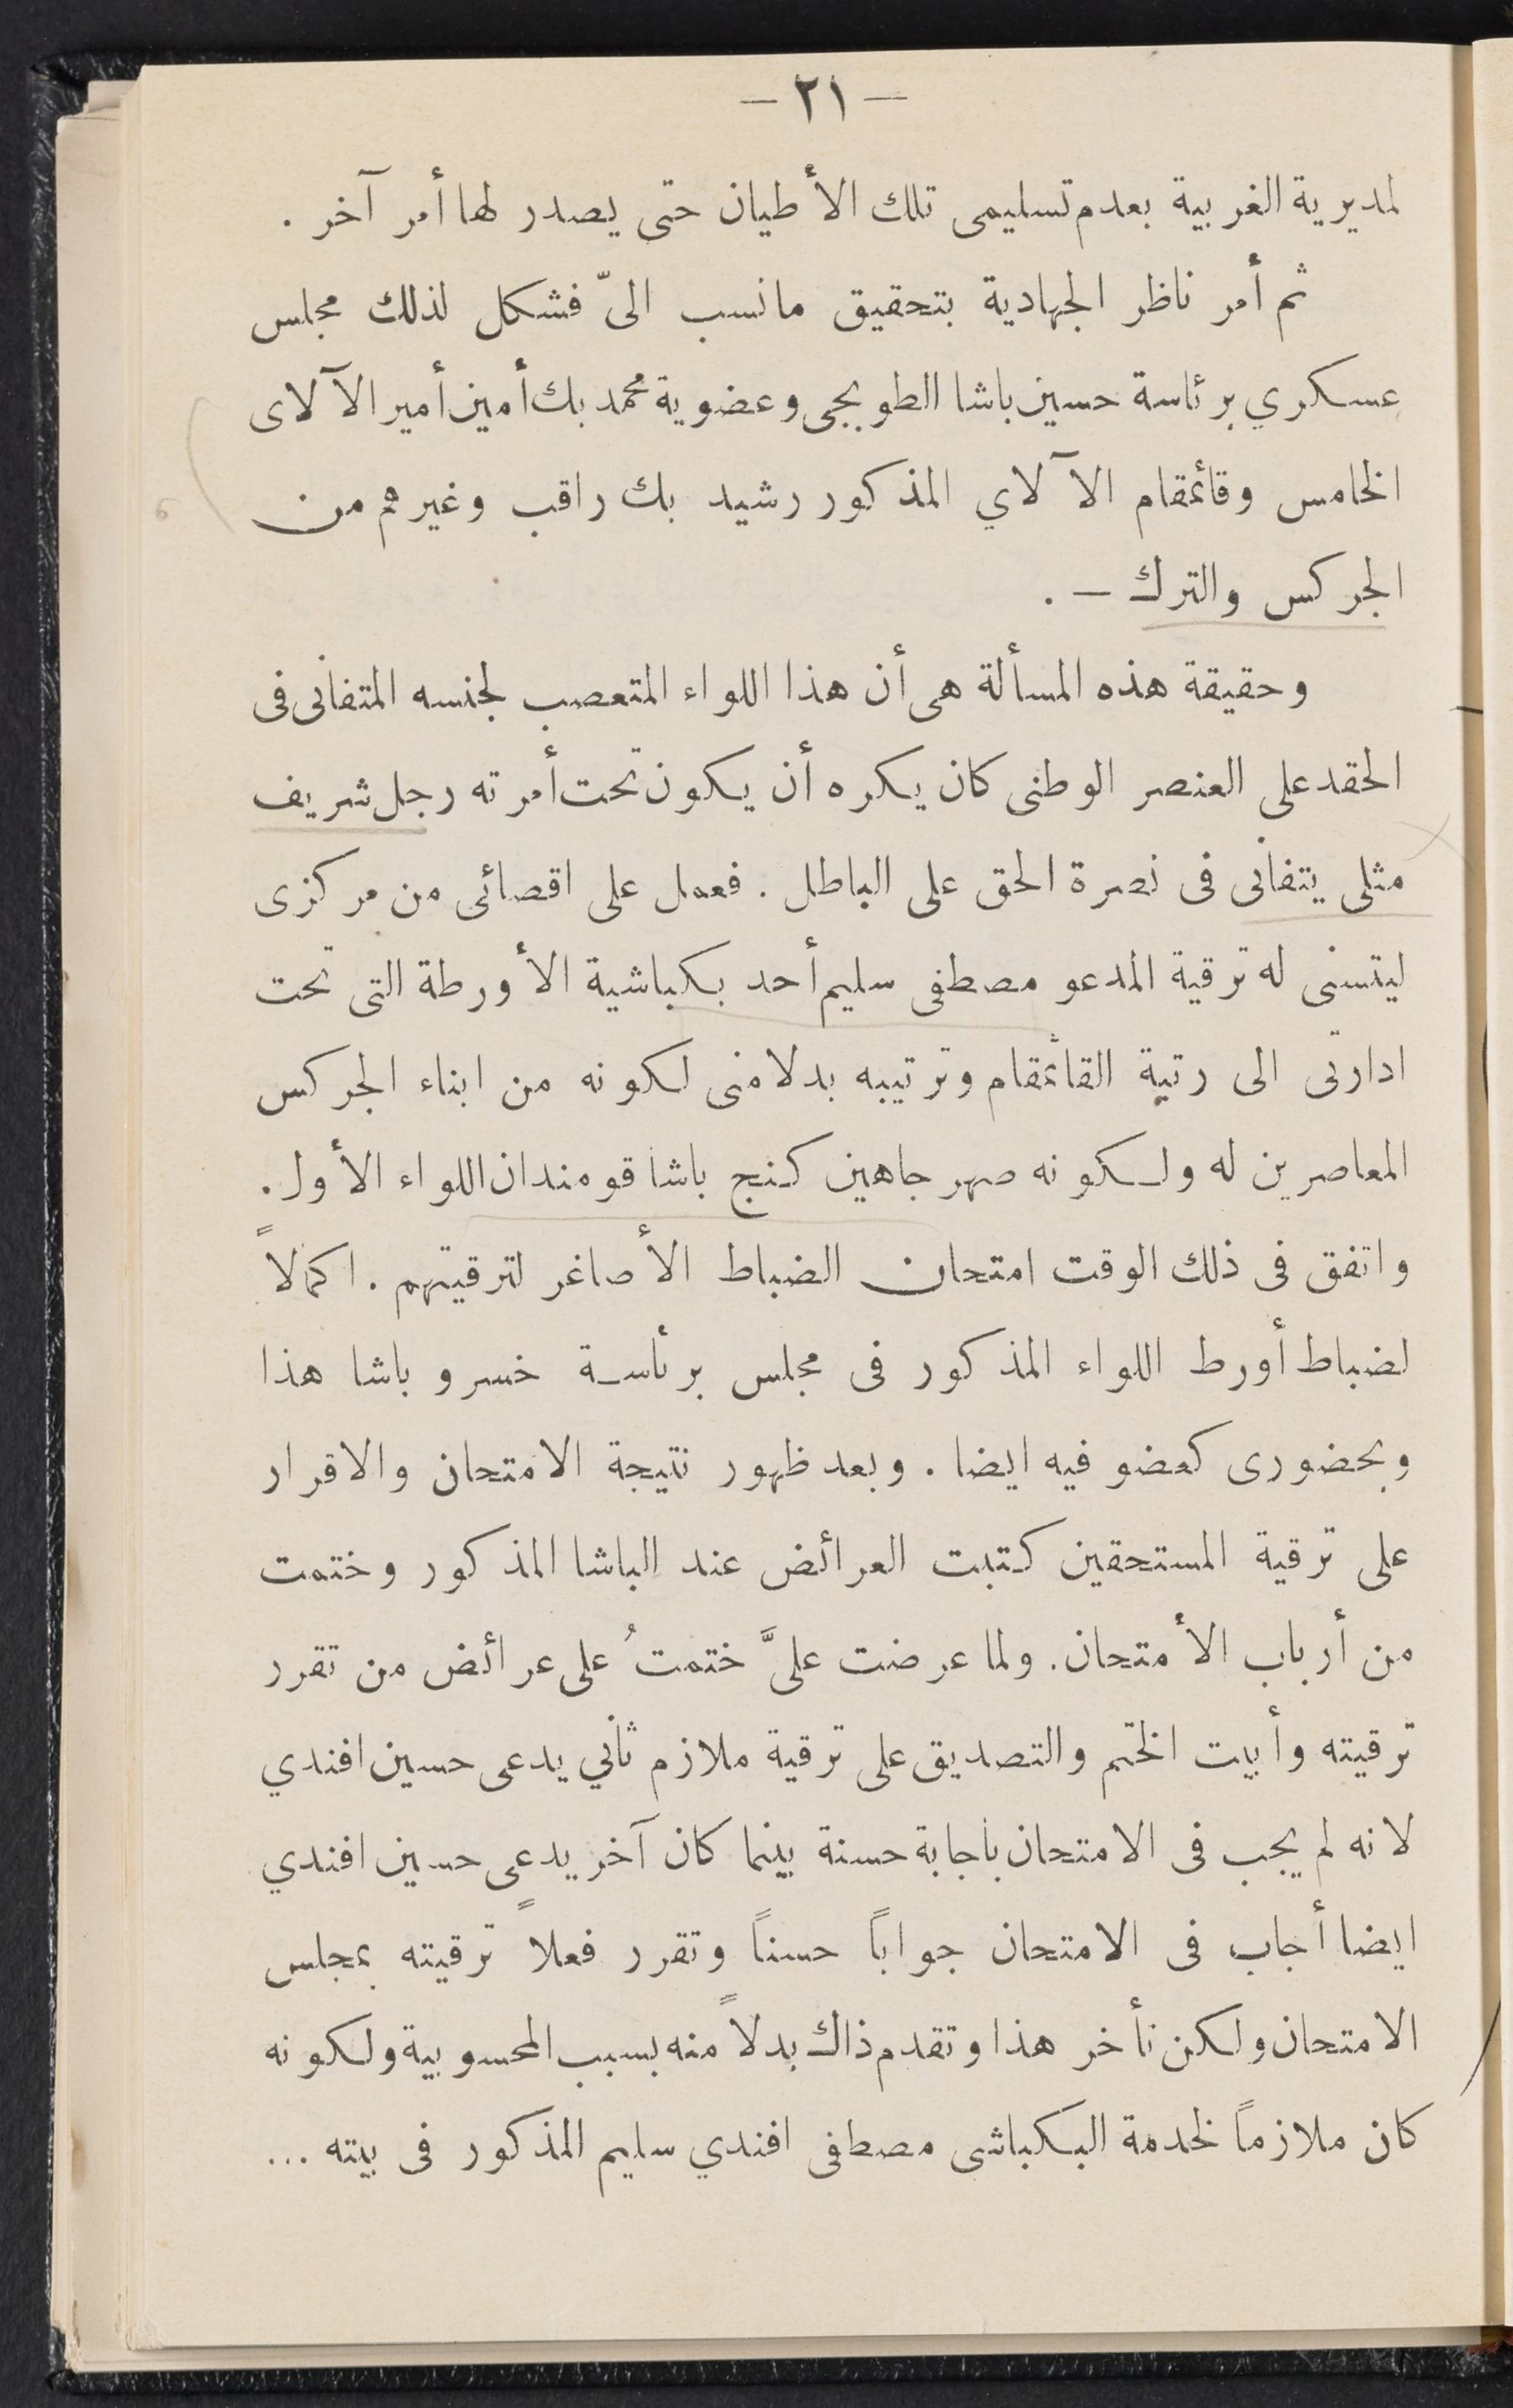 — ٢١ —
لمديرية الغربية بعدم تسليمى تلك الأطيان حتى يصدر لها أمر آخر .
ثم أمر ناظر الجهادية بتحقيق مانسب الىّ فشكل لذلك مجلس
عسكري برئاسة حسين باشا الطوبجى وعضوية محمد بك أمين أمير الآلاى
الخامس وقائمقام الآلاي المذكور رشيد بك راقب وغيرهم من
الجركس والترك — .
وحقيقة هذه المسألة هى أن هذا اللواء المتعصب لجنسه المتفانى فى
الحقد على العنصر الوطنى كان يكره أن يكون تحت أمرته رجل شريف
مثلى يتفانى فى نصرة الحق على الباطل . فعمل على اقصائى من مركزى
ليتسنى له ترقية المدعو مصطفى سليم أحد بكباشية الأورطة التى تحت
ادارتى الى رتبة القائمقام وترتيبه بدلا منى لكونه من ابناء الجركس
المعاصرين له ولكونه صهر جاهين كنج باشا قومندان اللواء الأول .
واتفق فى ذلك الوقت امتحان الضباط الأصاغر لترقيتهم . اكمالاً
لضباط أورط اللواء المذكور فى مجلس برئاسة خسرو باشا هذا
وبحضورى كعضو فيه ايضا . وبعد ظهور نتيجة الامتحان والاقرار
على ترقية المستحقين كتبت العرائض عند الباشا المذكور وختمت
من أرباب الأمتحان . ولما عرضت علىَّ ختمتُ على عرائض من تقرر
ترقيته وأبيت الختم والتصديق على ترقية ملازم ثاني يدعى حسين افندي
لانه لم يجب فى الامتحان بأجابة حسنة بينما كان آخر يدعى حسين افندي
ايضا أجاب فى الامتحان جواباً حسناً وتقرر فعلاً ترقيته بمجلس
الامتحان ولكن تأخر هذا وتقدم ذاك بدلاً منه بسبب المحسوبية ولكونه
كان ملازماً لخدمة البكباشى مصطفى افندي سليم المذكور فى بيته ...